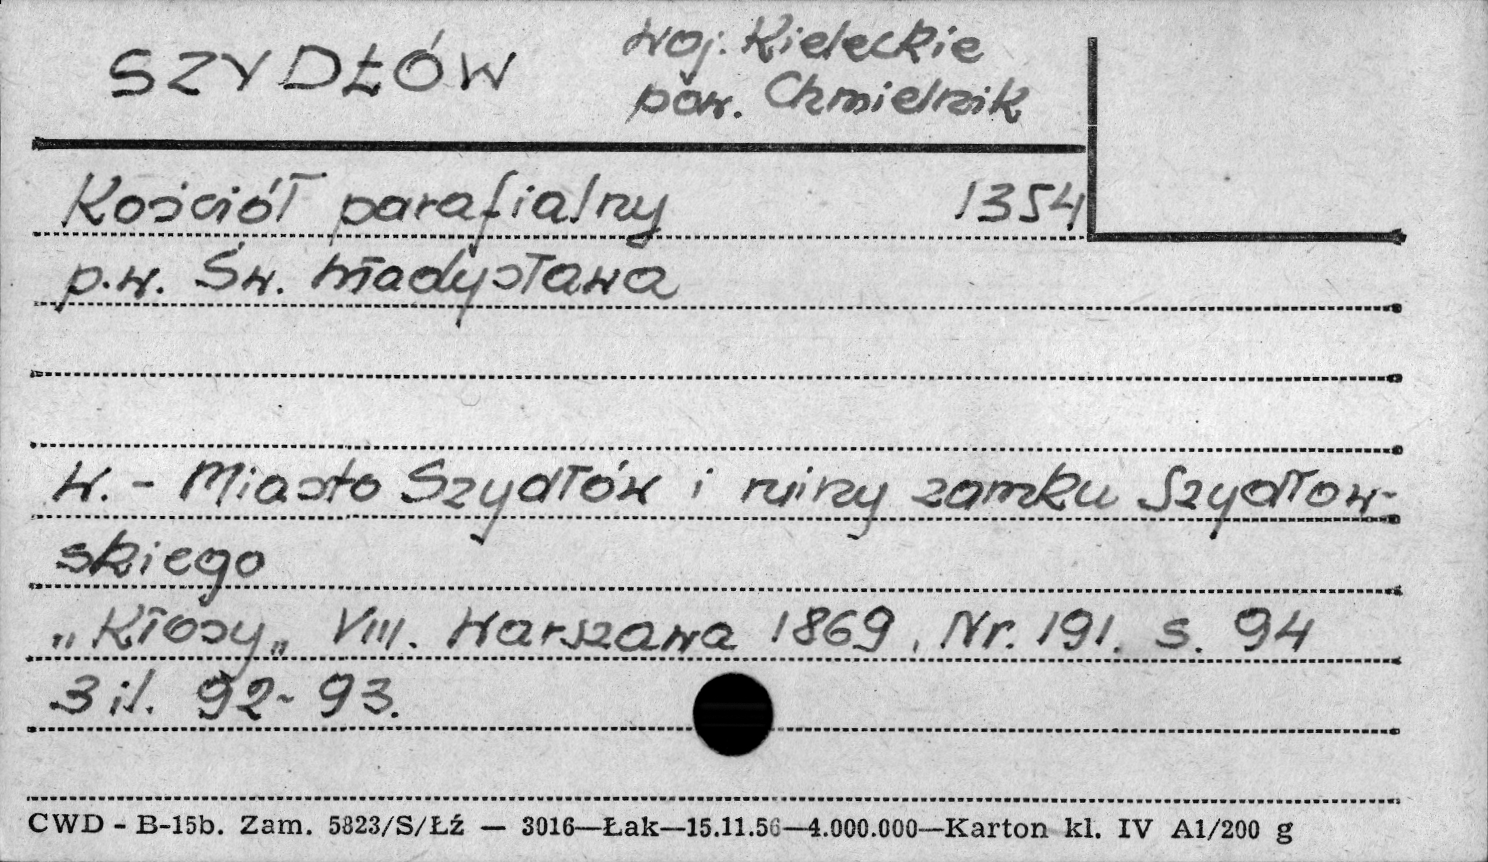 SZYDŁÓW woj. Kieleckie
pow. Chmielnik
Kościół parafialny 1354
p.w. Św. Władysława
W. - Miasto Szydłów i ruiny zamku Szydłow-
skiego
„Kłosy„ VIII. Warszawa 1869, Nr. 191. s. 94
3 il. 92-93.
CWD - B-15b. Zam. 5823/S/Łź — 3016—Łak—15.11.56—4.000.000—Karton kl. IV A1/200 g